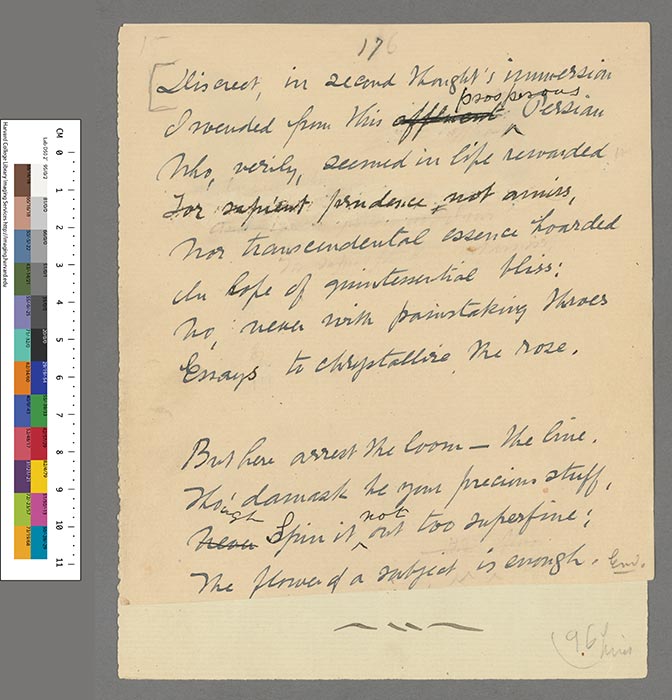 176
Discreet, in second thought's immersion
prosperous
I wended from this affluent ^ Persian
Who, verily, seemed in life rewarded
For sapient prudence not amiss,
Nor transcendental essence hoarded
In hope of quintessential bliss;
No, never with painstaking throes
Essays to chrystallize the rose.
But here arrest the loom — the line.
Tho'ugh damask be your precious stuff,
never Spin it ^ not out too superfine;
The flower of a subject is enough. End.
(96 lines
Harvard College Library Imaging Services http://imaging.harvard.edu
CM 0 1 2 3 4 5 6 7 8 9 10 11